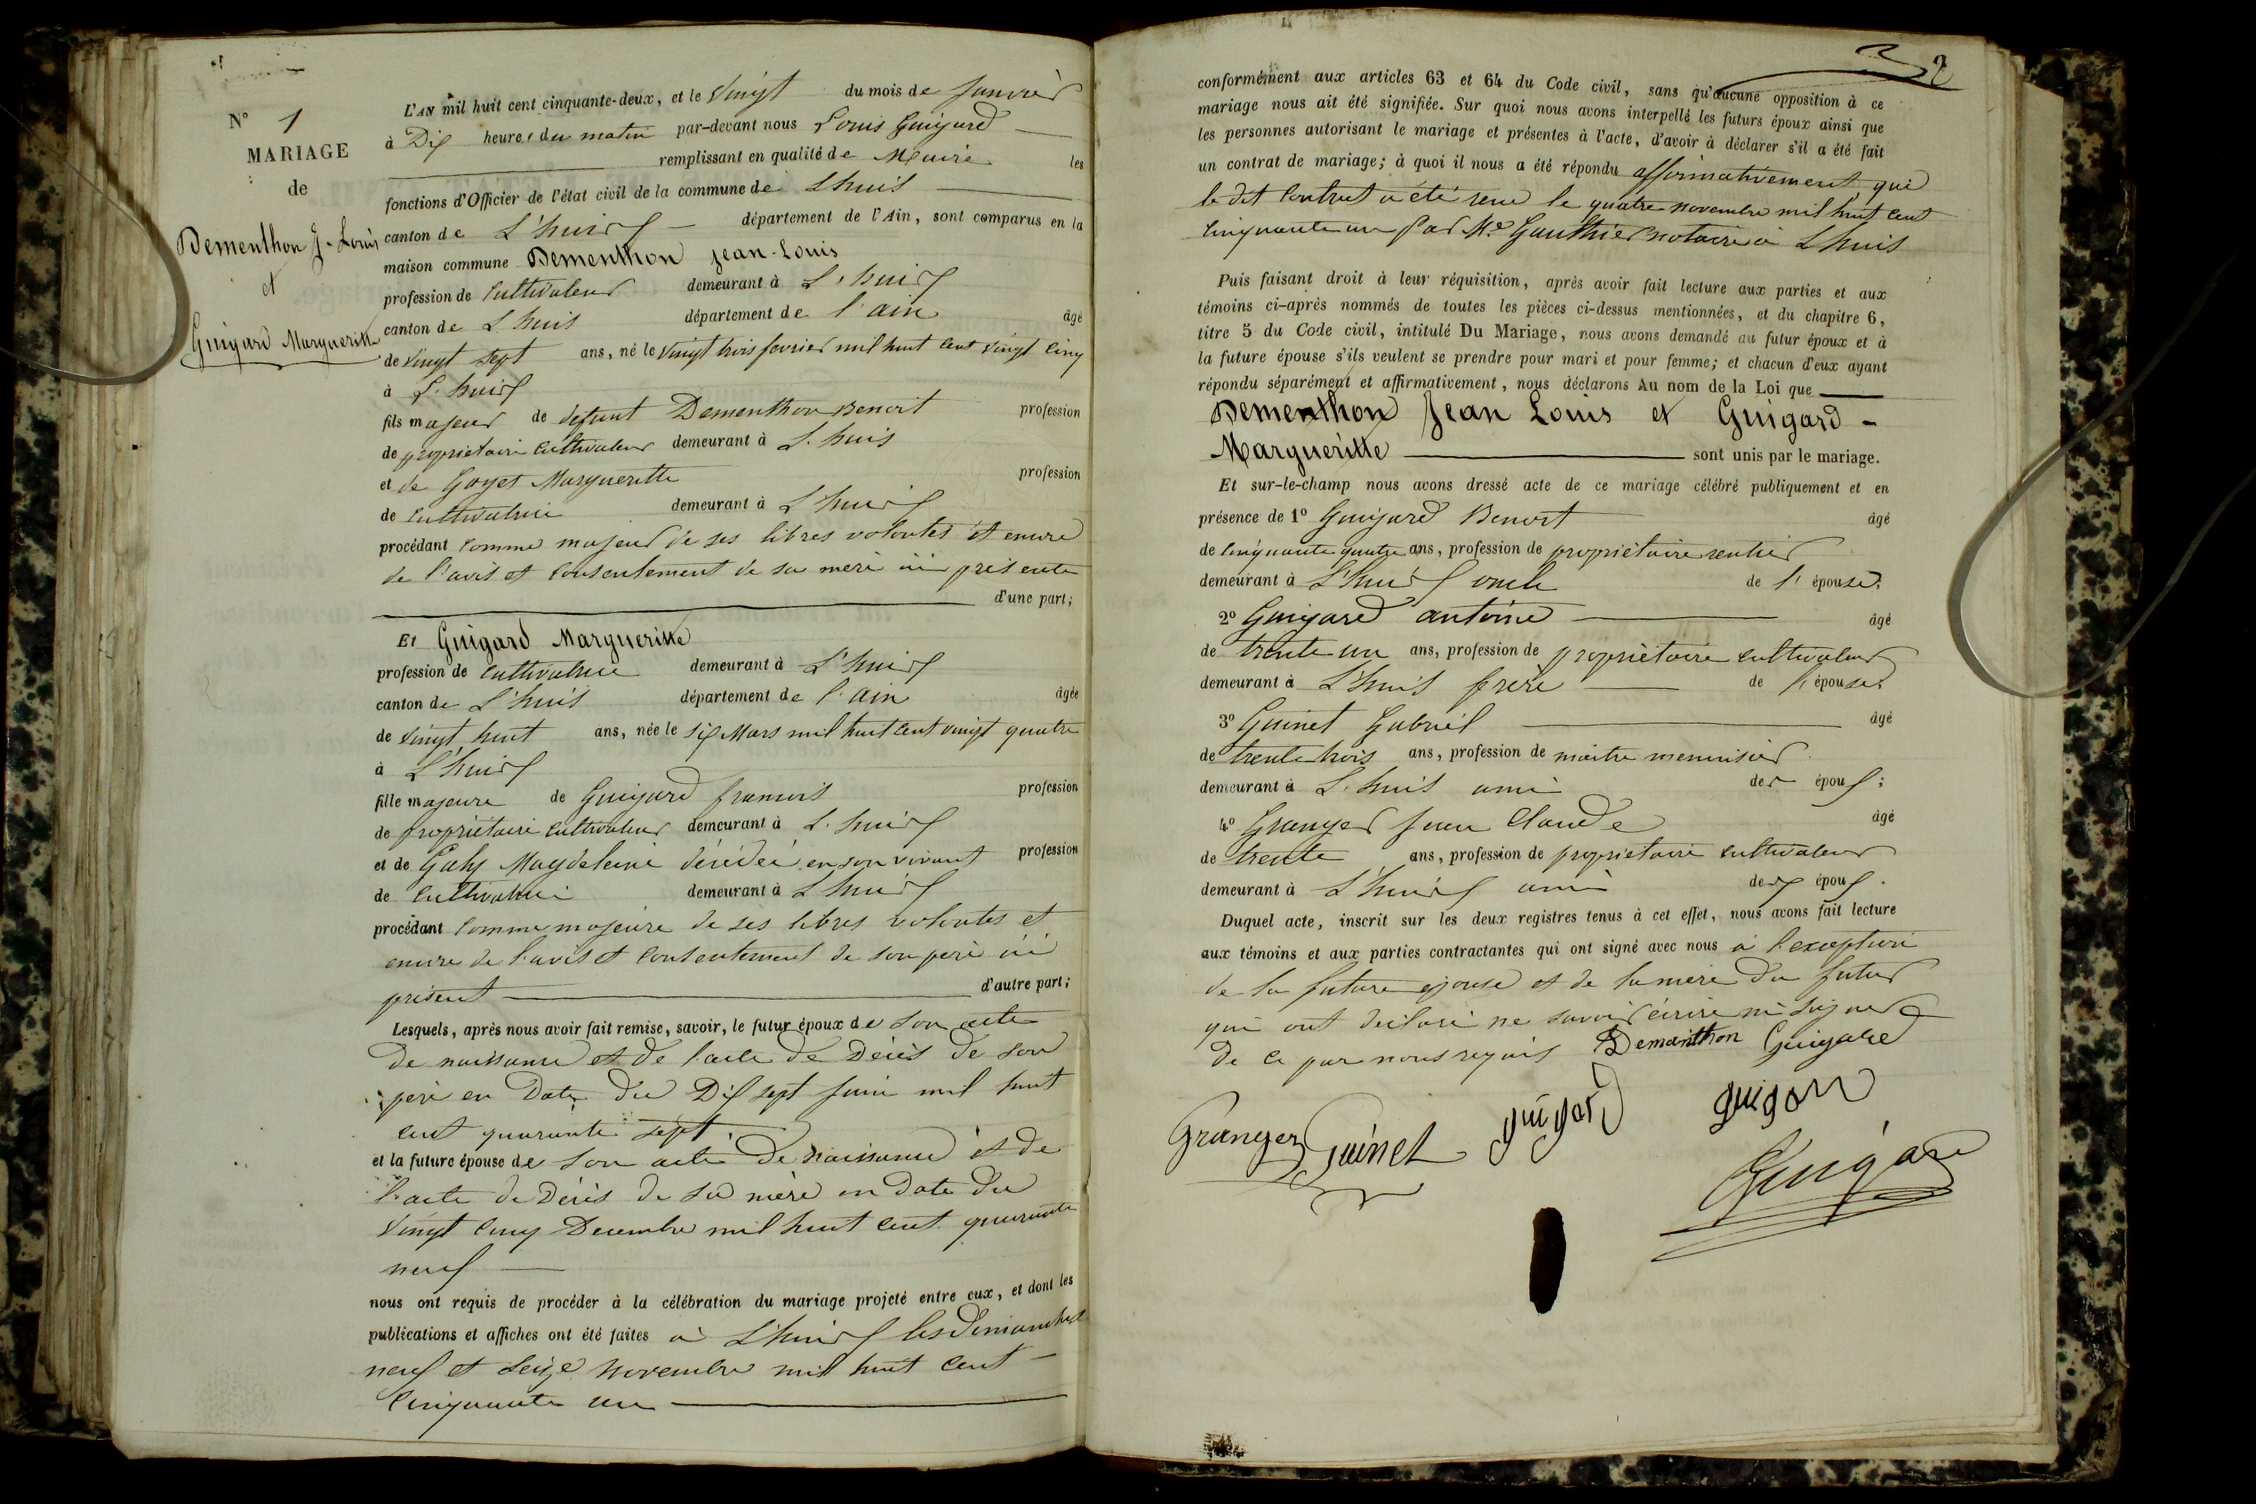 N° 1
MARIAGE
de
Dementhon J. Louis
et
Guigard Margueritte
L'AN mil huit cent cinquante-deux, et le vingt du mois de Janvier
à Dix heures du matin par-devant nous Louis Guigard
remplissant en qualité de Maire les
fonctions d'Officier de l'état civil de la commune de Lhuis
canton de L'huis département de l'Ain, sont comparus en la
maison commune Dementhon Jean-Louis
profession de cultivateur demeurant à L'huis
canton de Lhuis département de l'ain âgé
de vingt sept ans, né le vingt trois fevrier mil huit cent vingt cinq
à L'huis
fils majeur de defunt Dementhon Benoit profession
de proprietaire cultivateur demeurant à L'huis
et de Goyet Margueritte profession
de cultivatrice demeurant à L'huis
procédant comme majeur de ses libres volontés et encore
de l'avis et consentement de sa mere ici présente
d'une part;
Et Guigard Margueritte
profession de cultivatrice demeurant à L'huis
canton de L'huis département de l'ain âgée
de vingt huit ans, née le six Mars mil huit cent vingt quatre
à L'huis
fille majeure de Guigard francois profession
de propriétaire cultivateur demeurant à L'huis
et de Magdeleine décédée en son vivant profession
de cultivatrice demeurant à L'huis
procédant comme majeure de ses libres volontes et
encore de l'avis et consentement de son pere ici
présent d'autre part;
Lesquels, après nous avoir fait remise, savoir, le futur époux de son acte
de naissance et de l'acte de Décès de son
pere en Date du Dix sept Juin mil huit
cent quarante sept
et la future épouse de son acte de naissance et de
l'acte de Décès de sa mère en date du
vingt cinq Decembre mil huit cent quarante
neuf
nous ont requis de procéder à la célébration du mariage projeté entre eux, et dont les
publications et affiches ont été faites à L'huis les dimanches
neuf et seize novembre mil huit cent
cinquante un
2
conformément aux articles 63 et 64 du Code civil, sans qu'aucune opposition à ce
mariage nous ait été signifiée. Sur quoi nous avons interpellé les futurs époux ainsi que
les personnes autorisant le mariage et présentes à l'acte, d'avoir à déclarer s'il a été fait
un contrat de mariage; à quoi il nous a été répondu affirmativement, que
le dit contrat a été recu le quatre novembre mil huit cent
cinquante un par Me Gauthier notaire à Lhuis
Puis faisant droit à leur réquisition, après avoir fait lecture aux parties et aux
témoins ci-après nommés de toutes les pièces ci-dessus mentionnées, et du chapitre 6,
titre 5 du Code civil, intitulé Du Mariage, nous avons demandé au futur époux et à
la future épouse s'ils veulent se prendre pour mari et pour femme; et chacun d'eux ayant
répondu séparément et affirmativement, nous déclarons Au nom de la Loi que
Dementhon Jean Louis et Guigard -
Margueritte sont unis par le mariage.
Et sur-le-champ nous avons dressé acte de ce mariage célébré publiquement et en
présence de 1° Guigard Benoit âgé
de cinquante quatre ans, profession de propriétaire rentier
demeurant à L'huis oncle de l'épouse;
2° Guigard antoine âgé
de trente un ans, profession de propriétaire cultivateur
demeurant à L'huis frere de l'épouse;
3° Guinet Gabriel âgé
de trente trois ans, profession de maitre menuisier
demeurant à L'huis ami des époux;
4° Granger Jean Claude âgé
de trente ans, profession de proprietaire cultivateur
demeurant à L'huis ami des époux.
Duquel acte, inscrit sur les deux registres tenus à cet effet, nous avons fait lecture
aux témoins et aux parties contractantes qui ont signé avec nous à l'exception
de la future épouse et de la mere du futur
qui ont declaré ne savoir écrire ni signer
de ce par nous requis Dementhon Guigard
Granger Guinet guigard guigard
Guigard